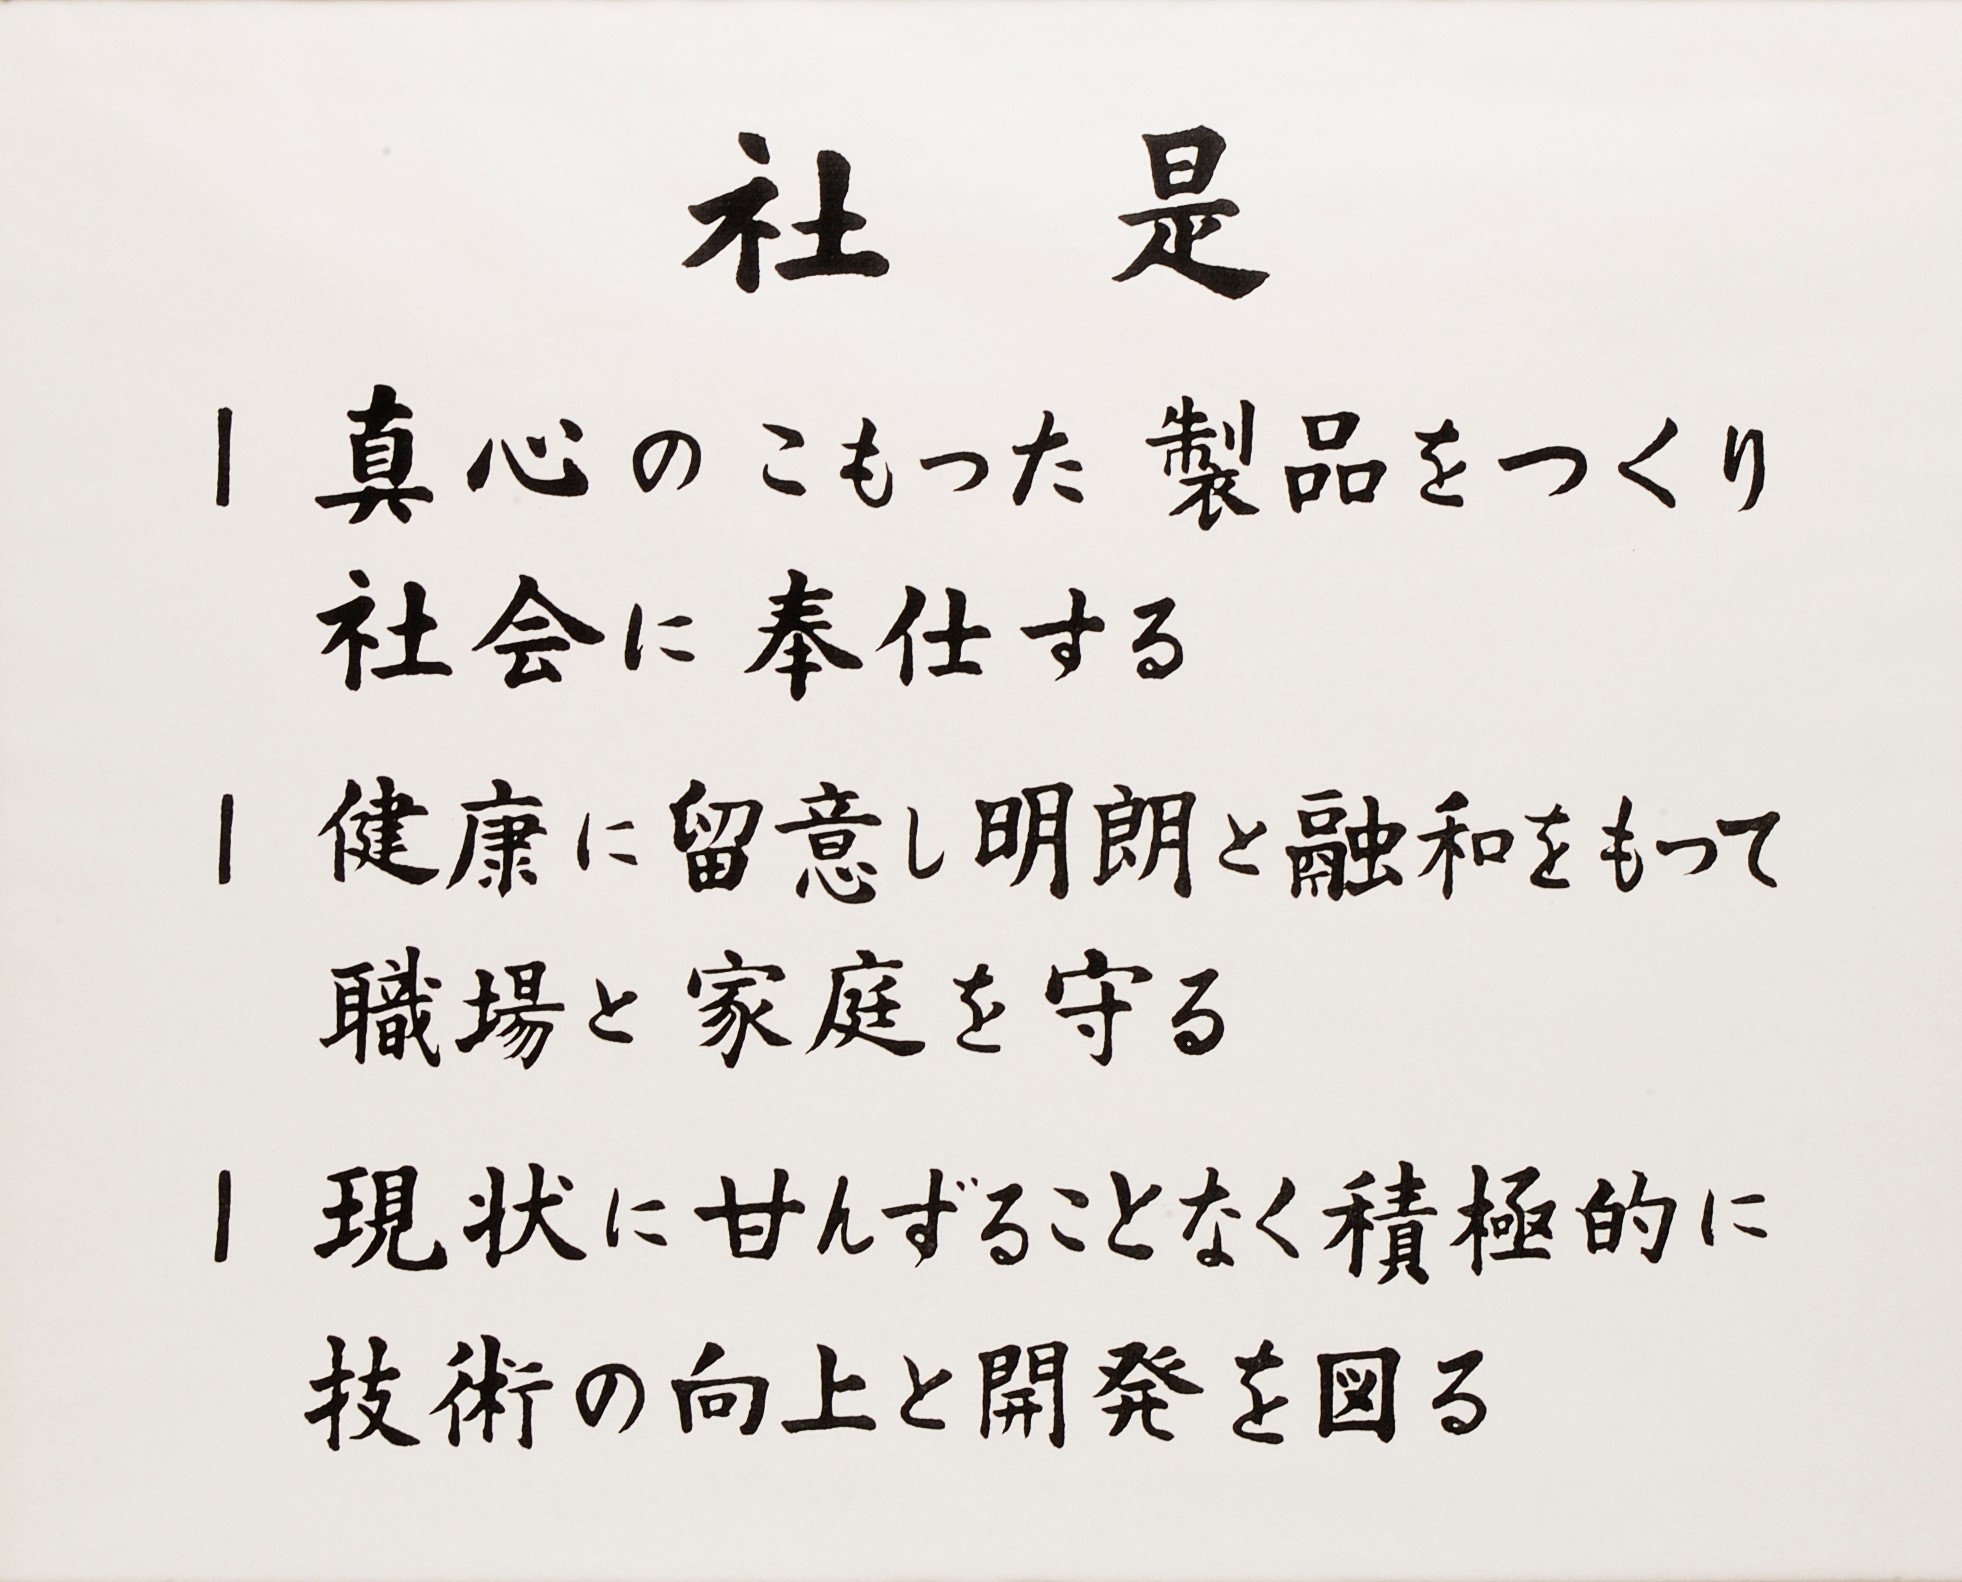 社是
| 真心のこもった製品をつくり
社会に奉仕する
| 健康に留意し明朗と融和をもって
職場と家庭を守る
| 現状に甘んずることなく積極的に
技術の向上と開発を図る